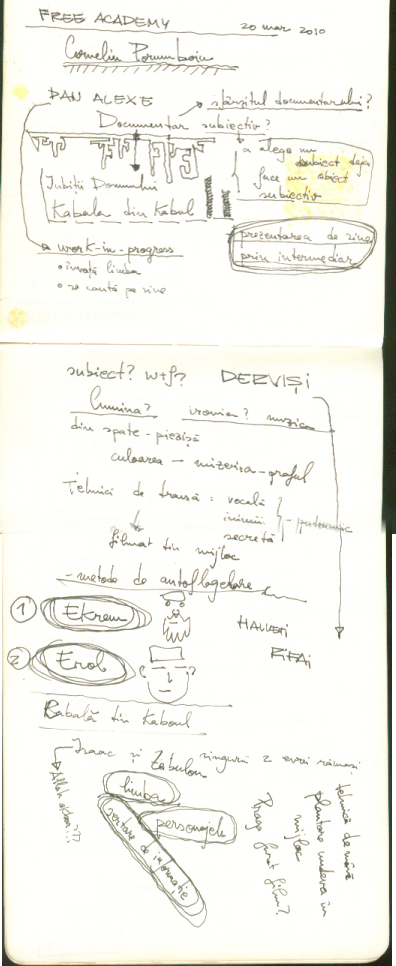 FREE ACADEMY
20 mar 2010
Corneliu Porumboiu
DAN ALEXE
sfârșitul documentarului?
Documentar subiectiv?
a alege un
subiect deja
face un obiect
subiectiv
Iubiții Domnului
Kabala din Kabul
prezentarea de sine
prin intermediar
work-in-progress
învață limba
se caută pe sine
subiect? wtf?
DERVIȘI
lumina? ironia? muzica
din spate - piezișă
culoarea - mizeria - praful
Tehnici de transă: vocală
inimii
secretă
filmat din mijloc
- metode de autoflagelare
1 Ekrem
HALVETI
2 Erol
RIFAI
Babală din Kaboul
Isaac și Zabulon singurii 2 evrei rămași
Allah akbar???
limba
personajele
sertare de informație
tehnică de
plantare undeva în
mijloc
film?